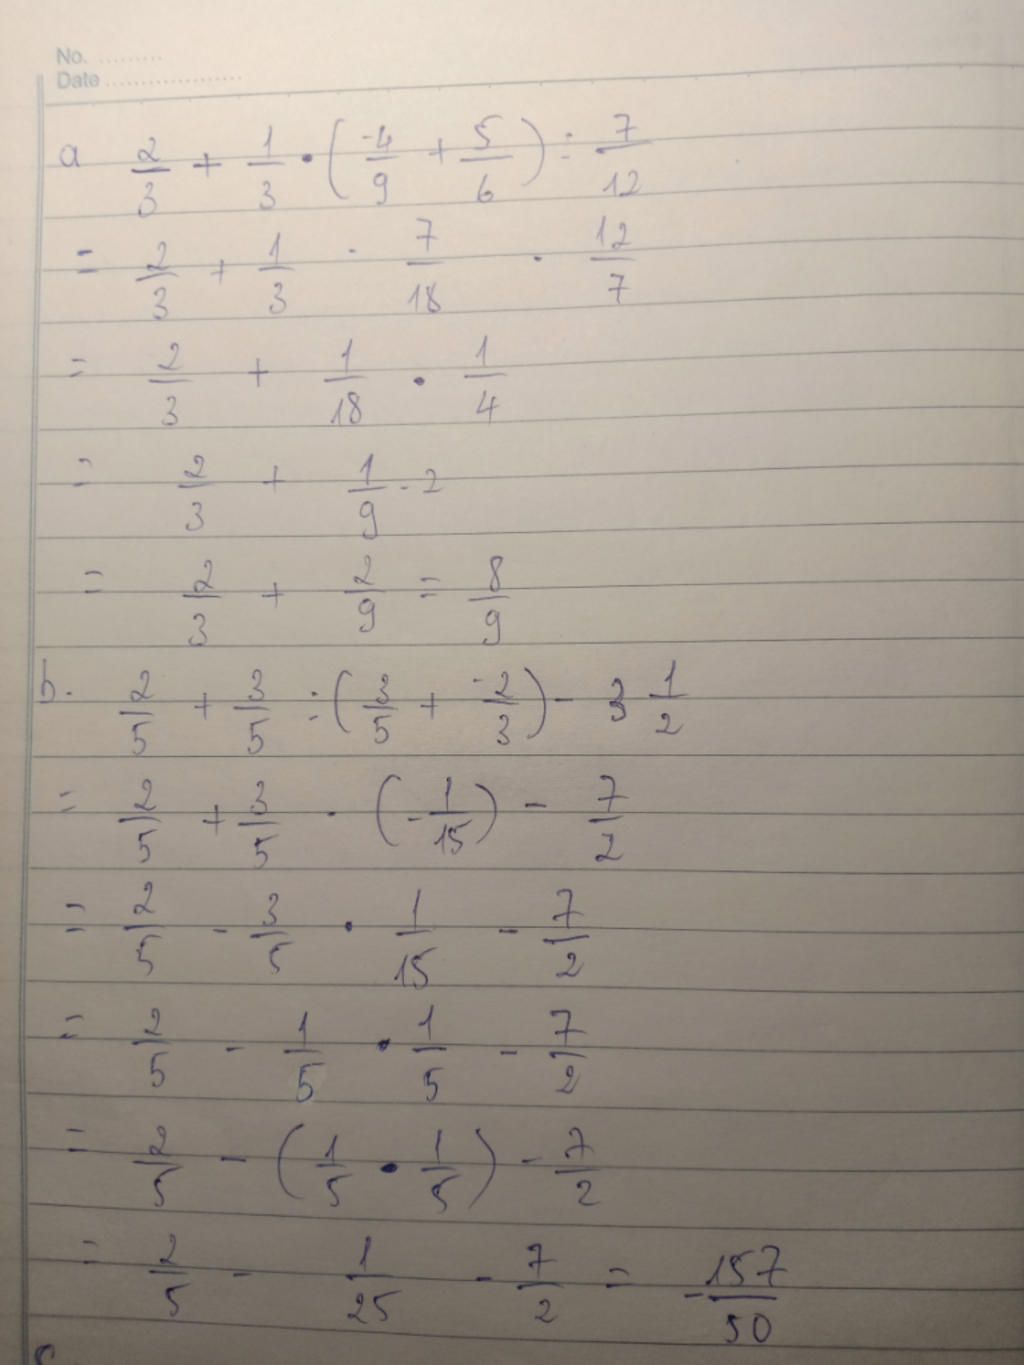 No. .........
Date ..................
a 2/3 + 1/3 • (-4/9 + 5/6) : 7/12
= 2/3 + 1/3 · 7/18 · 12/7
= 2/3 + 1/18 • 1/4
= 2/3 + 1/9 · 2
= 2/3 + 2/9 = 8/9
b. 2/5 + 3/5 ÷ (3/5 + -2/3) - 3 1/2
= 2/5 + 3/5 · (-1/15) - 7/2
= 2/5 - 3/5 • 1/15 - 7/2
= 2/5 - 1/5 • 1/5 - 7/2
= 2/5 - (1/5 • 1/5) - 7/2
= 2/5 - 1/25 - 7/2 = -157/50